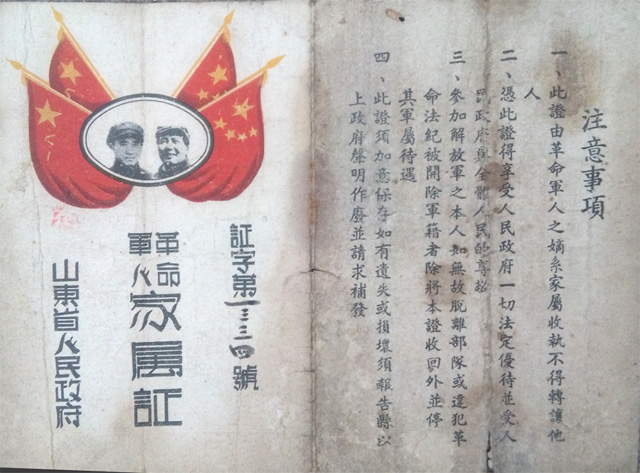 注意事項
一、此證由革命軍人之嫡系家屬收執不得轉讓他
人
二、憑此證得享受人民政府一切法定優待並受人
民政府與全體人民的尊敬
三、參加解放軍之本人如無故脫離部隊或違犯革
命法紀被開除軍籍者除將本證收回外並停
其軍屬待遇
四、此證須加意保存如有遺失或損壞須報告縣以
上政府聲明作廢並請求補發
証字第一三三四號
革命
軍人
家屬証
山東省人民政府